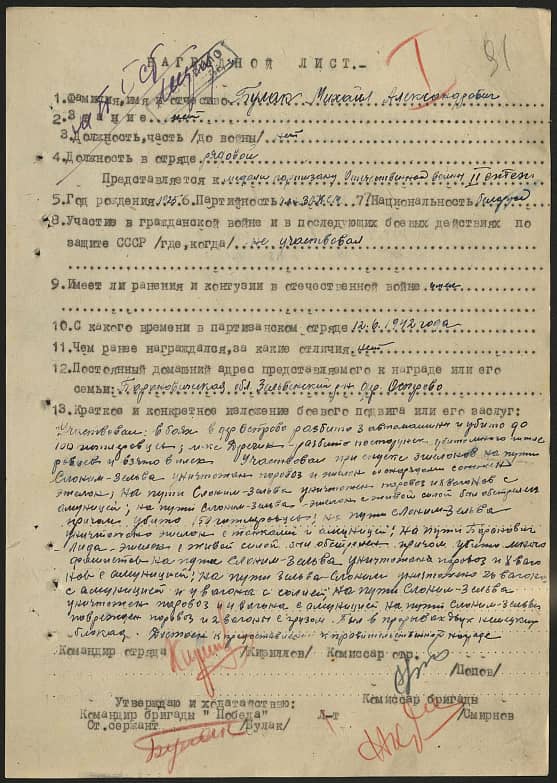 91
НАГРАДНОЙ ЛИСТ.-
1.Фамилия,имя и отчество Булак Михаил Александрович
2.Звание нет
3.Должность,часть /до войны/ нет
4.Должность в отряде рядовой
Представляется к медали партизану Отечественной войны II степен
5.Год рождения 1925 6.Партийность 7.Национальность
8.Участие в гражданской войне и в последующих боевых действиях по
защите СССР /где,когда/ не участвовал
9.Имеет ли ранения и контузии в отечественной войне
10.С какого времени в партизанском отряде 12.6.1942 года
11.Чем ранее награждался,за какие отличия нет
12.Постоянный домашний адрес представляемого к награде или его
семьи: Барановическая обл. Зельвенский р-н дер. Острово
13.Краткое и конкретное изложение боевого подвига или его заслуг:
Участвовал: в боях в дер Острово разбито 3 автомашины и убито до
100 гитлеровцев;
и взято в плен Участвовал при спуске эшелонов на пути
Слоним-Зельва уничтожен паровоз и эшелон
эшелон; на пути Слоним-Зельва уничтожен паровоз и 8 вагонов с
амуницией; на пути Слоним-Зельва эшелон с живой силой был обстрелян
причем убито 150 гитлеровцев; на пути Слоним-Зельва
уничтожено эшелон с танками и амуницией; на пути Баранович
Лида эшелон с живой силой был обстрелян причем убито много
фашистов на пути Слоним-Зельва уничтожено паровоз и 8 ваго
нов с амуницией; на пути Зельва Слоним уничтожено вагона
с амуницией и 4 вагона с солью; на пути Слоним-Зельва
уничтожен паровоз и 4 вагона с амуницией на пути Слоним-Зельва
поврежден паровоз и 2 вагоны с грузом. Был в прорывах двух немецких
блокад. Достоин к представлению к правительственной награде
Командир отряда /Кириллов/ Комиссар отр.
/Попов/
Утверждаю и ходатайствую: Комиссар бригады
Командир бригады "Победа" Л-т /Смирнов
Ст.сержант /Булак/
Булак